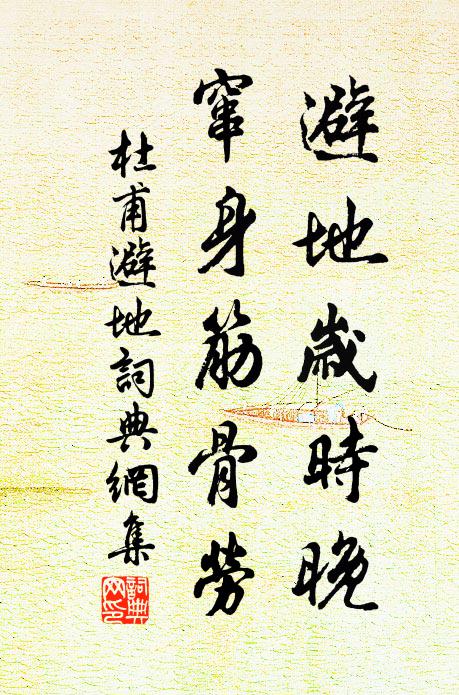 避地歲時晚
窜身筋骨勞
杜甫避地詞典網集
詞典网印